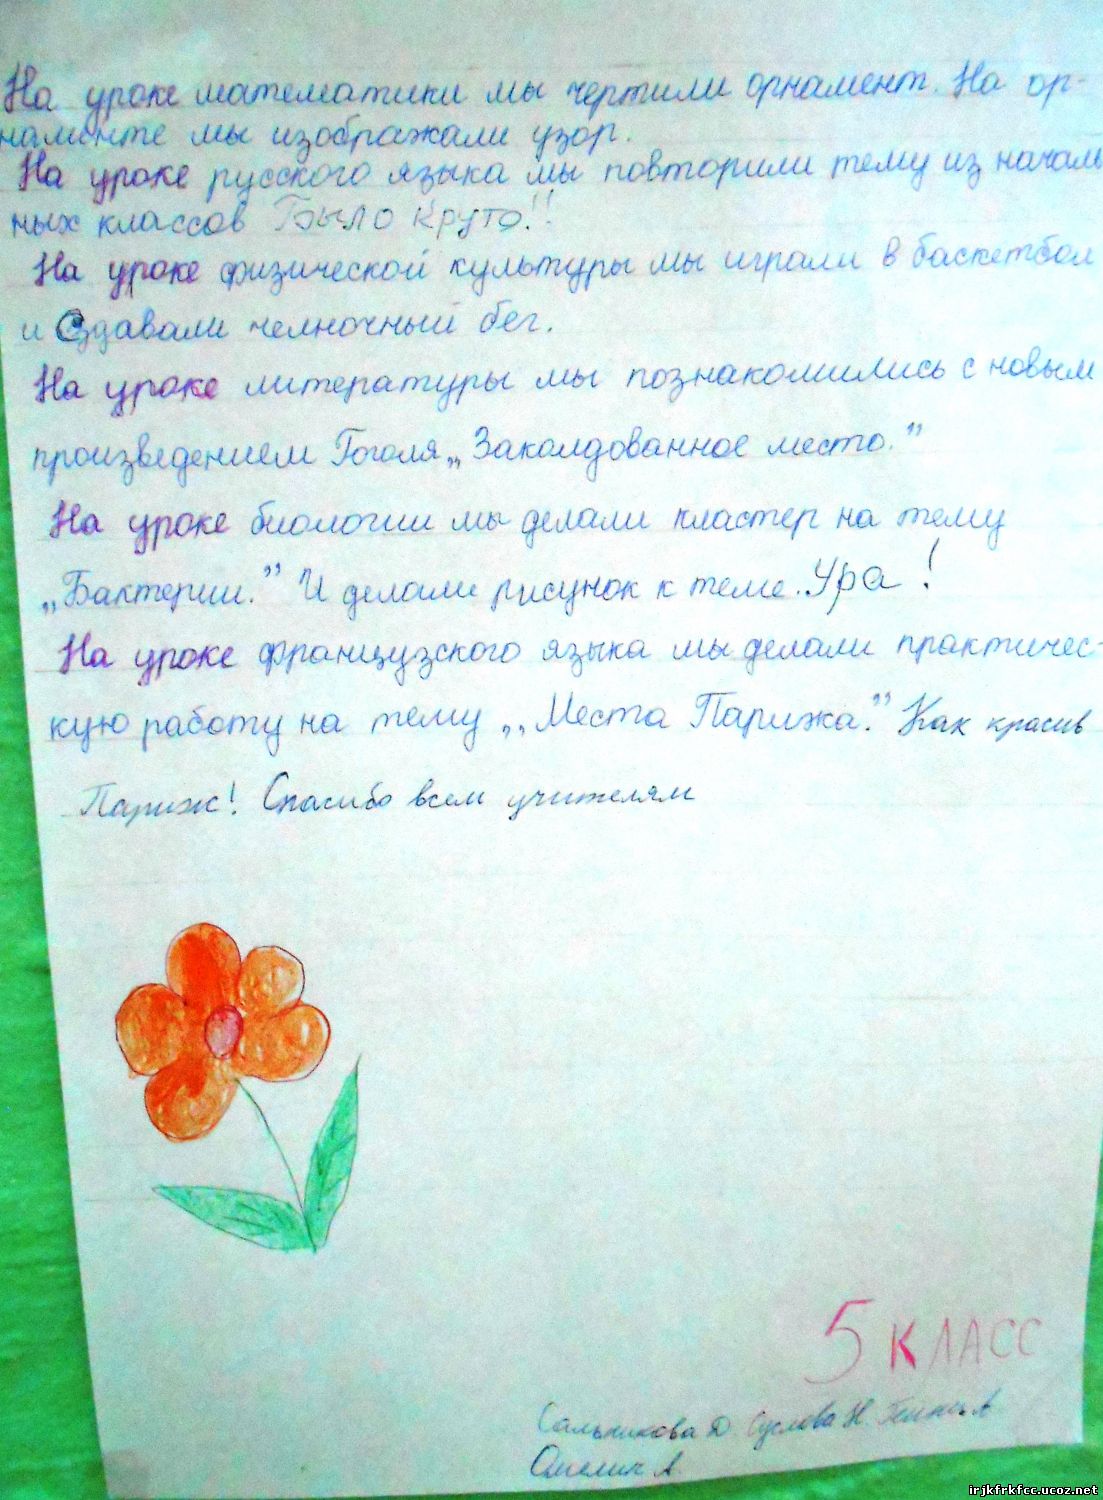 На уроке математики мы чертили орнамент. На ор-
наменте мы изображали узор.
На уроке русского языка мы повторили тему из началь
ных классов Было круто!!
На уроке физической культуры мы играли в баскетбол
и сдавали челночный бег.
На уроке литературы мы познакомились с новым
произведением Гоголя „Заколдованное место.”
На уроке биологии мы делали кластер на тему
„Бактерии.” И делали рисунок к теме. Ура!
На уроке французского языка мы делали практичес-
кую работу на тему „Места Парижа.” Как красив
Париж! Спасибо всем учителям
5 класс
Сальникова Д. Суслова Н. А
А.
irjkfrkfcc.ucoz.net